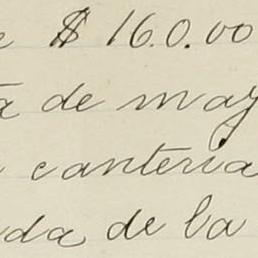 e $ 160.00
a de may
canteria
da de la